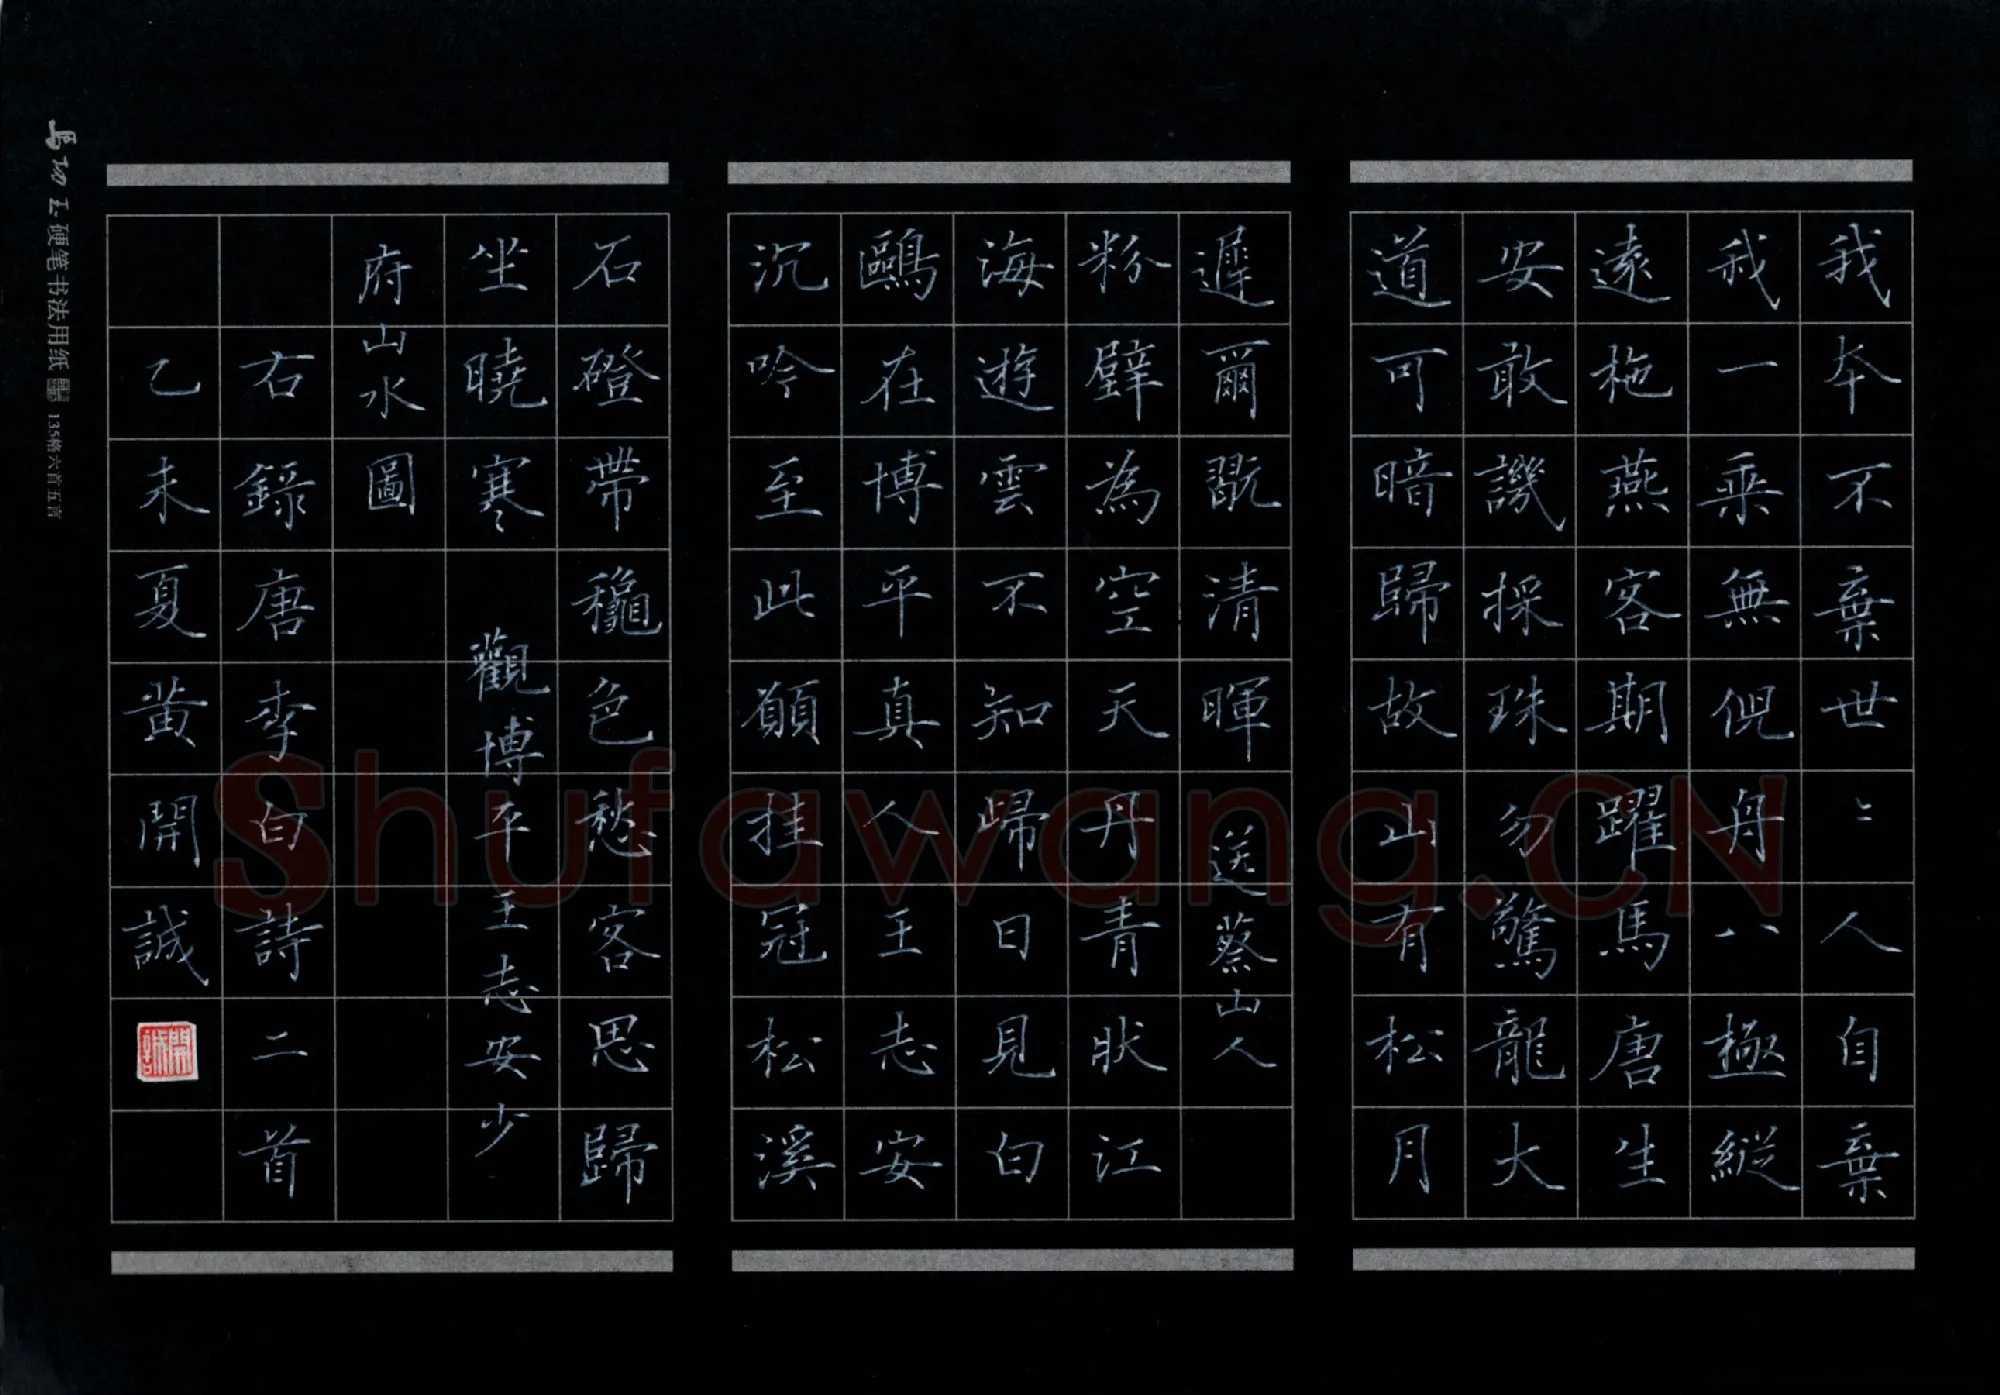 我本不棄世〻人自棄
我一乘無倪舟八極縱
遠柂燕客期躍馬唐生
安敢譏採珠勿驚龍大
道可暗歸故山有松月
遲爾翫清暉 送蔡山人
粉壁為空天丹青狀江
海遊雲不知歸日見白
鷗在博平真人王志安
沉吟至此願挂冠松溪
石磴帶穐色愁客思歸
坐曉寒 觀博平王志安少
府山水圖
右錄唐李白詩二首
乙未夏黃開誠
開誠
硬笔书法用纸 135格六首五言
Shufawang.CN